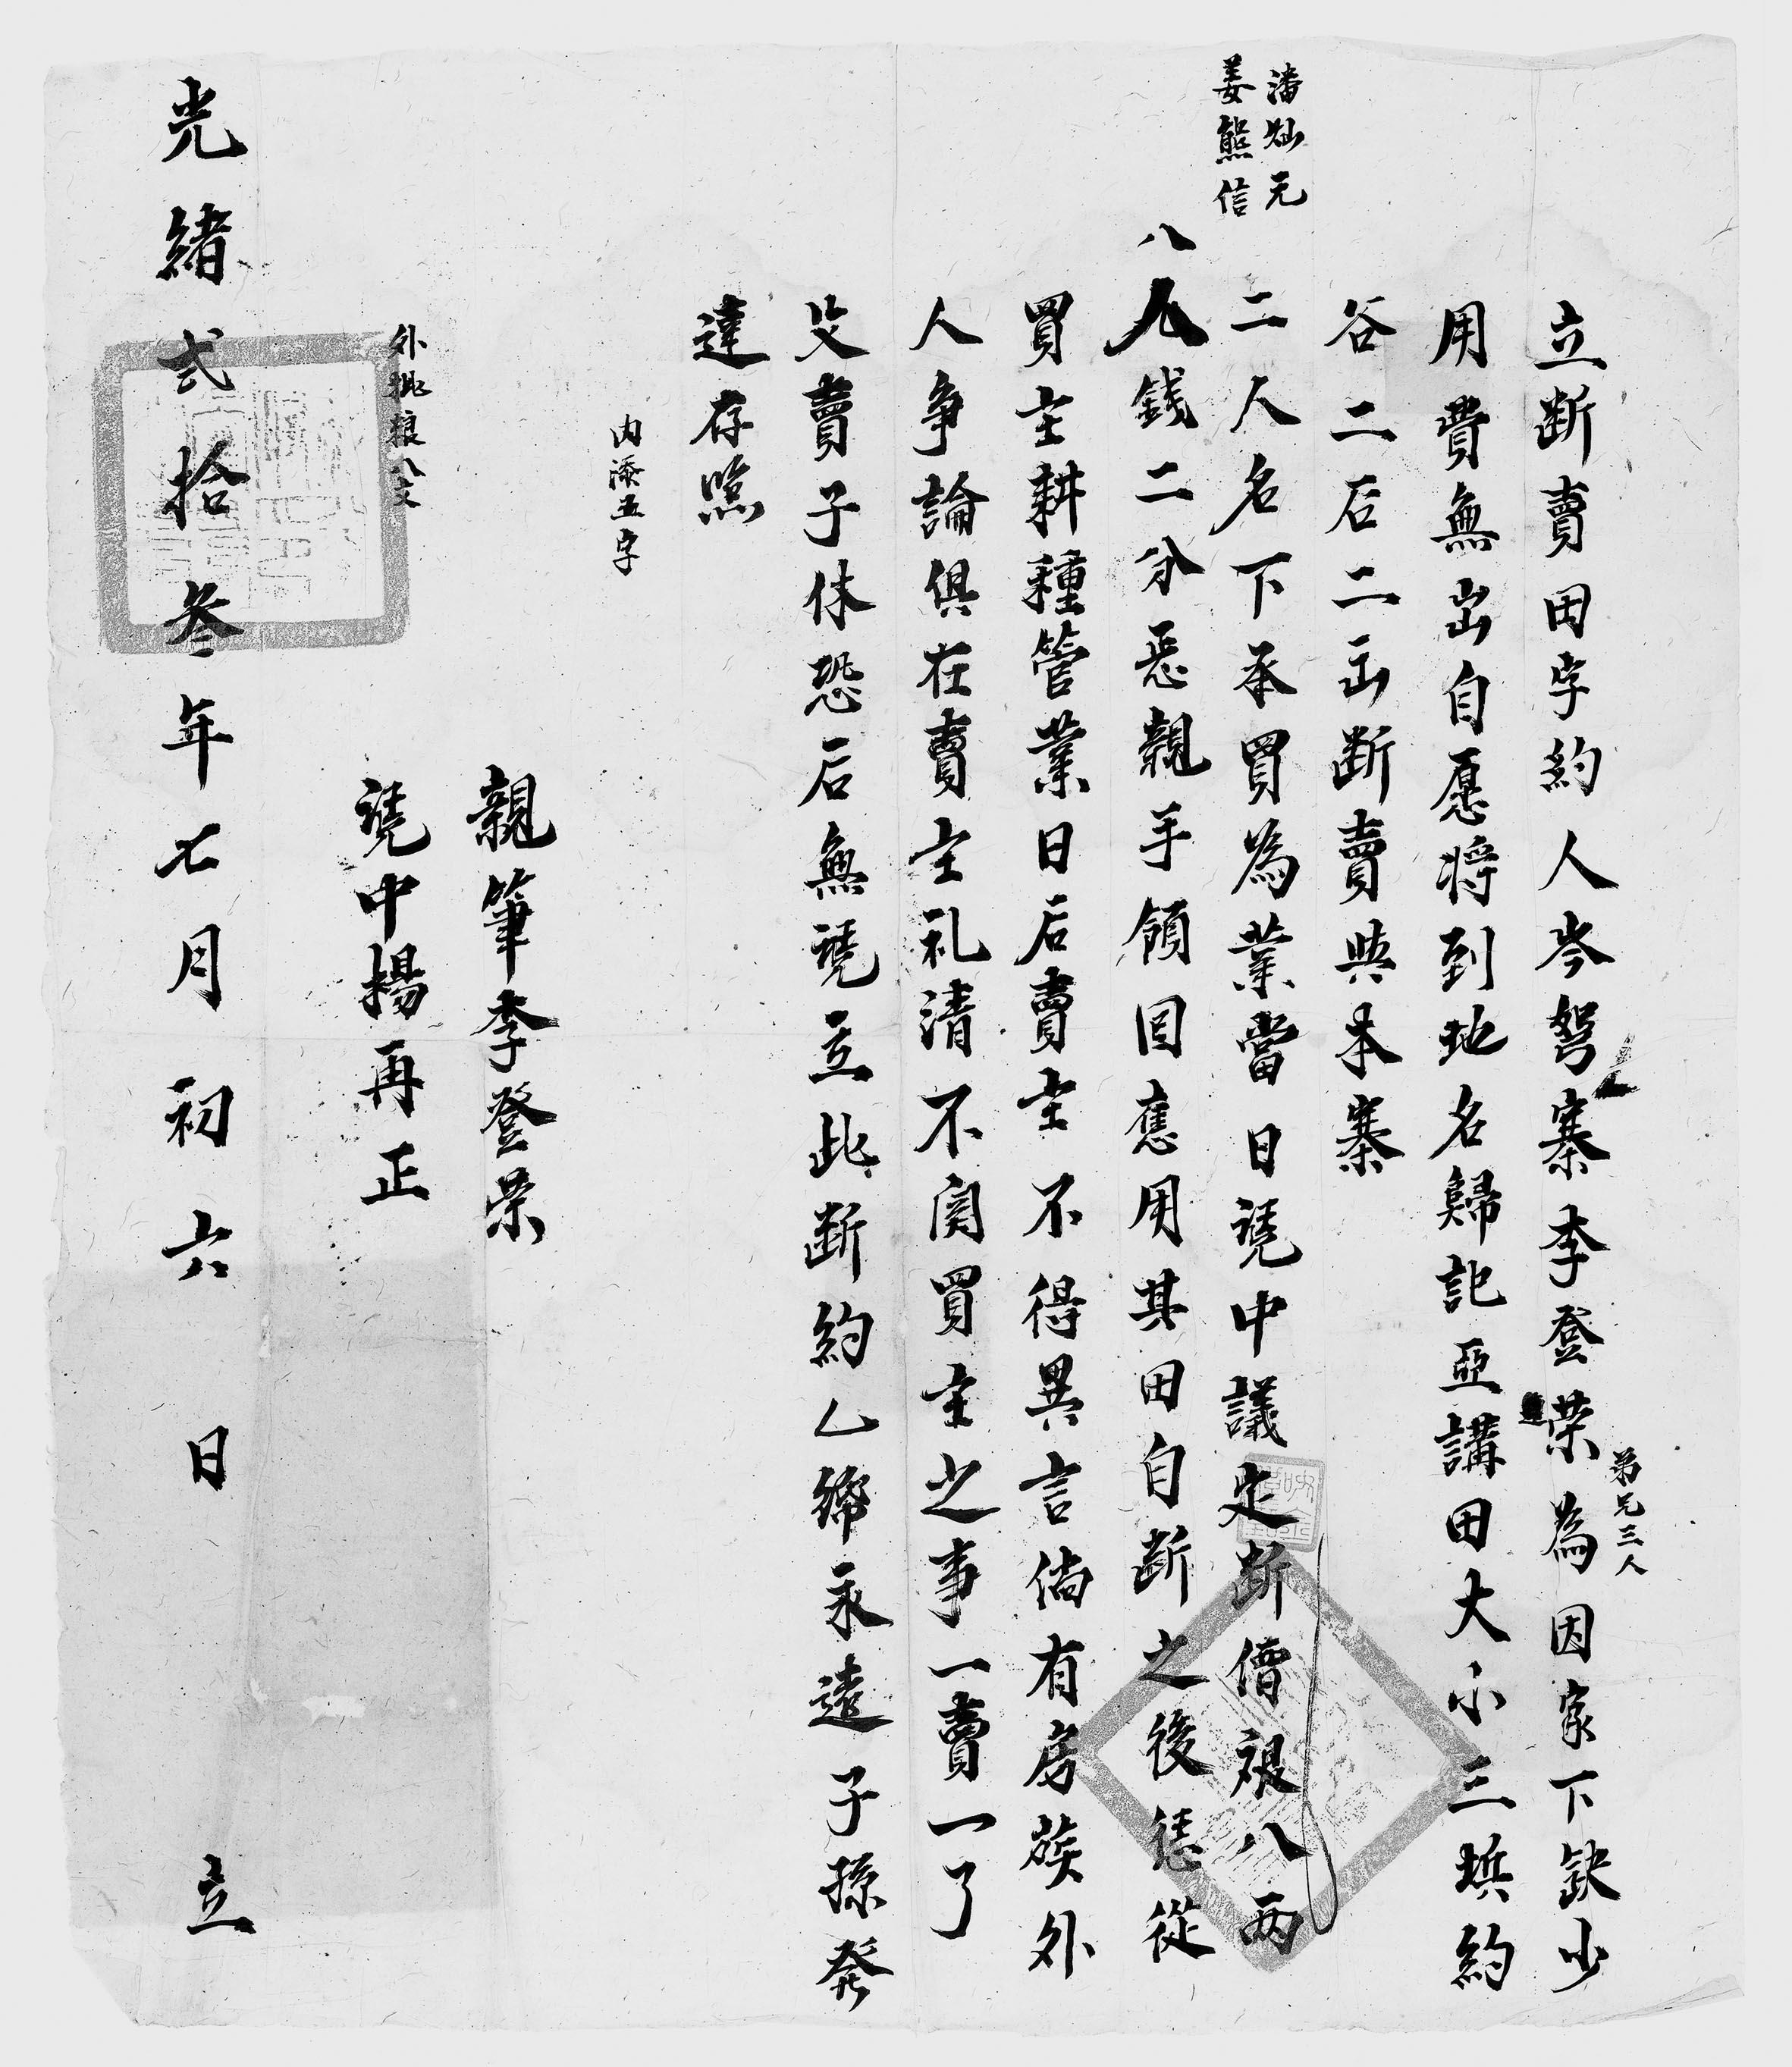 立断賣田字約人岑努寨李登荣弟兄三人為因家下缺少
用費無出自愿将到地名歸記亞講田大小三坵約
谷二石二斗断賣與本寨
潘灿元
姜熊信
二人名下承買為業當日憑中議定断價銀八两
八錢二分悉親手領回應用其田自断之後恁從
買主耕種管業日后賣主不得異言倘有房族外
人争論俱在賣主礼清不関買主之事一賣一了
父賣子休恐后無憑立此断約乙纸永遠子孫發
達存照
内添五字
親筆李登荣
外批粮八文
憑中楊再正
光緒弍拾叁年七月初六日立